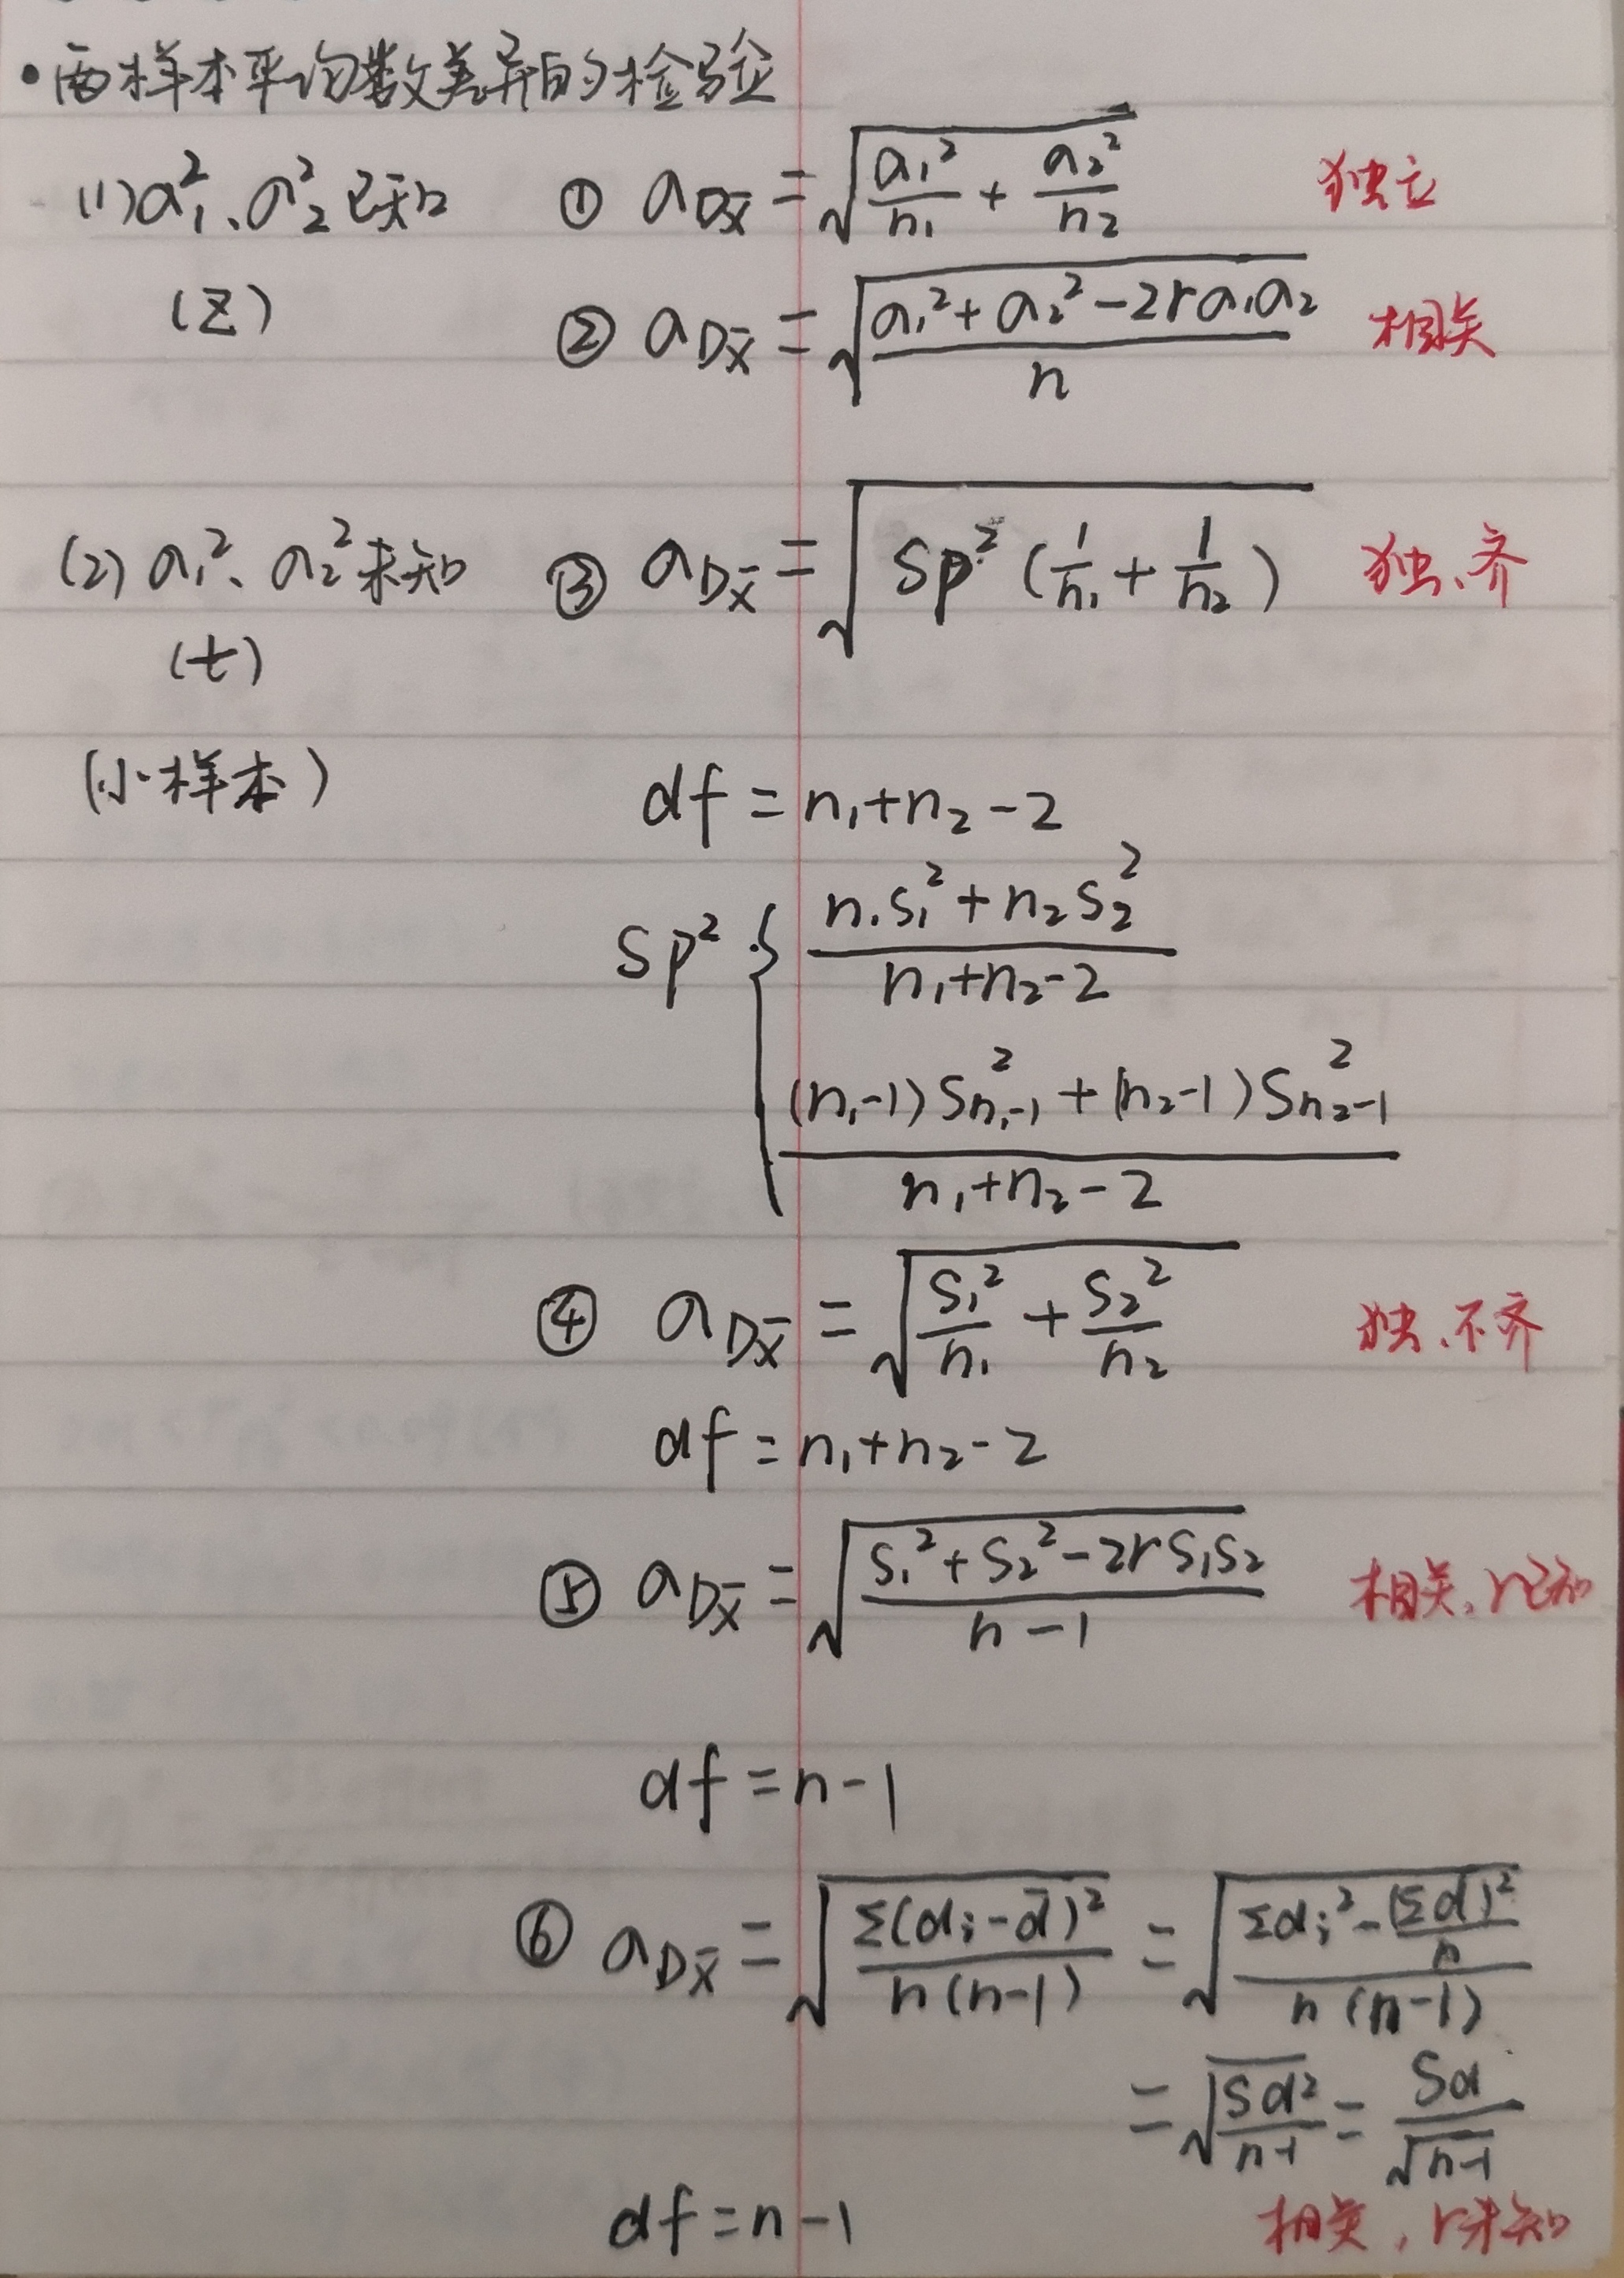 •两样本平均数差异的检验
(1) σ₁²、σ₂²已知 ① σ_DX̄ = √(σ₁²/n₁ + σ₂²/n₂) 独立
(Z) ② σ_DX̄ = √((σ₁²+σ₂²-2rσ₁σ₂)/n) 相关
(2) σ₁²、σ₂²未知 ③ σ_DX̄ = √(Sp²(1/n₁ + 1/n₂)) 独、齐
(t)
(小样本) df = n₁+n₂-2
Sp² { (n₁S₁²+n₂S₂²)/(n₁+n₂-2)
((n₁-1)S²n₁-1 + (n₂-1)S²n₂-1)/(n₁+n₂-2)
④ σ_DX̄ = √(S₁²/n₁ + S₂²/n₂) 独、不齐
df = n₁+n₂-2
⑤ σ_DX̄ = √((S₁²+S₂²-2rS₁S₂)/(n-1)) 相关,r已知
df = n-1
⑥ σ_DX̄ = √(Σ(dᵢ-d̄)²/(n(n-1))) = √((Σdᵢ²-(Σd)²/n)/(n(n-1)))
= √(Sd²/(n-1)) = Sd/√(n-1)
df = n-1 相关,r未知